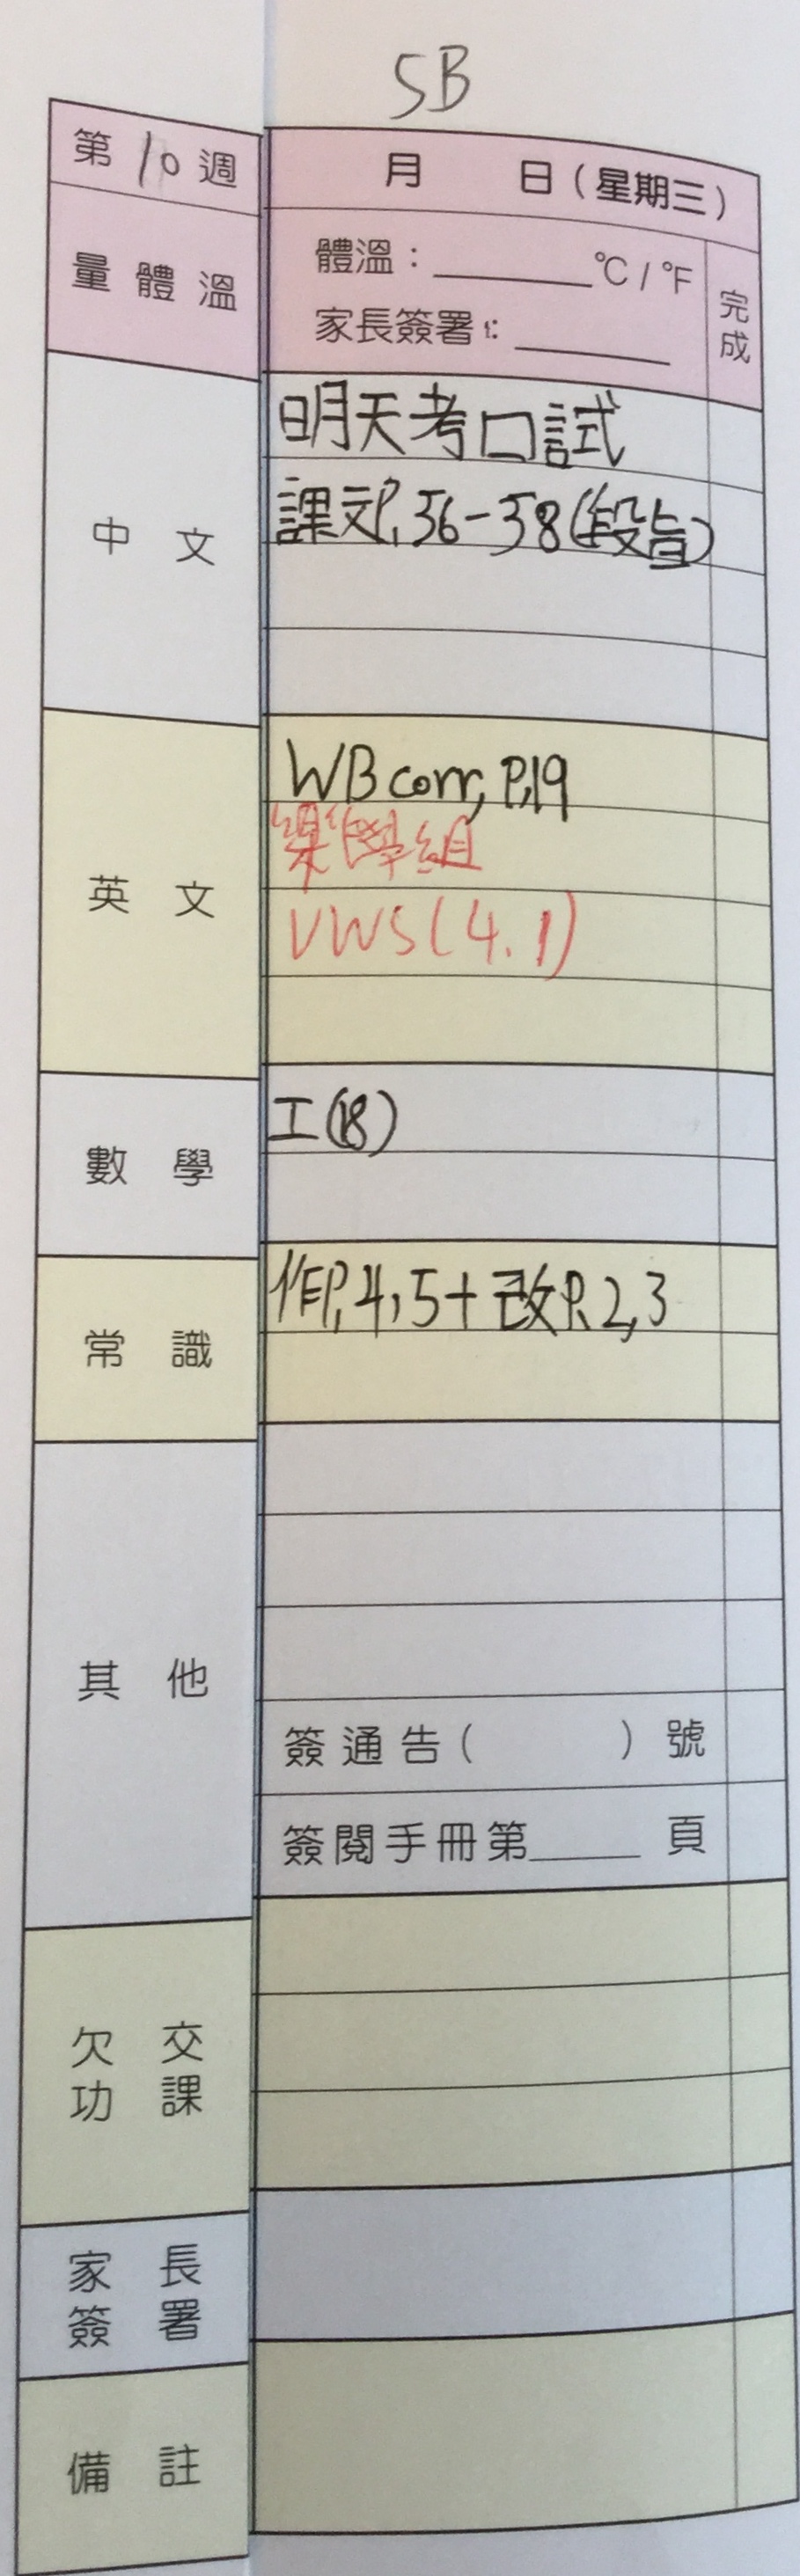 5B
第10週
月 日(星期三)
量體溫
體溫:______°C/°F
家長簽署:______
完成
中文
明天考口試
課文P.56-58(段旨)
英文
WB corr, P.19
樂學組
VWS(4.1)
數學
工(18)
常識
作P.4,5+改P.2,3
其他
簽通告( )號
簽閱手冊第_____頁
欠交功課
家長簽署
備註